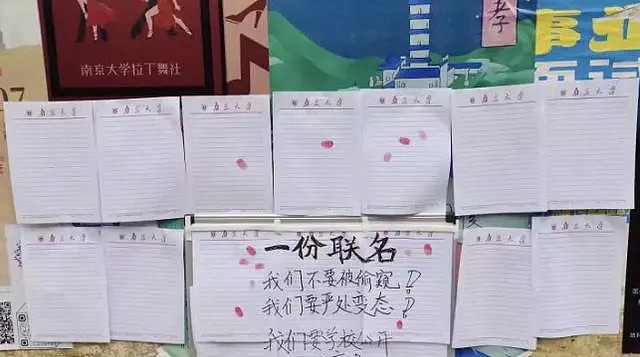 孝
07
南京大学拉丁舞社
事业
南京大学
南京大学
南京大学
南京大学
南京大学
南京大学
南京大学
南京大学
南京大学
南京大学
南京大学
一份联名
我们不要被偷窥!
我们要严处变态!
我们要学校公开